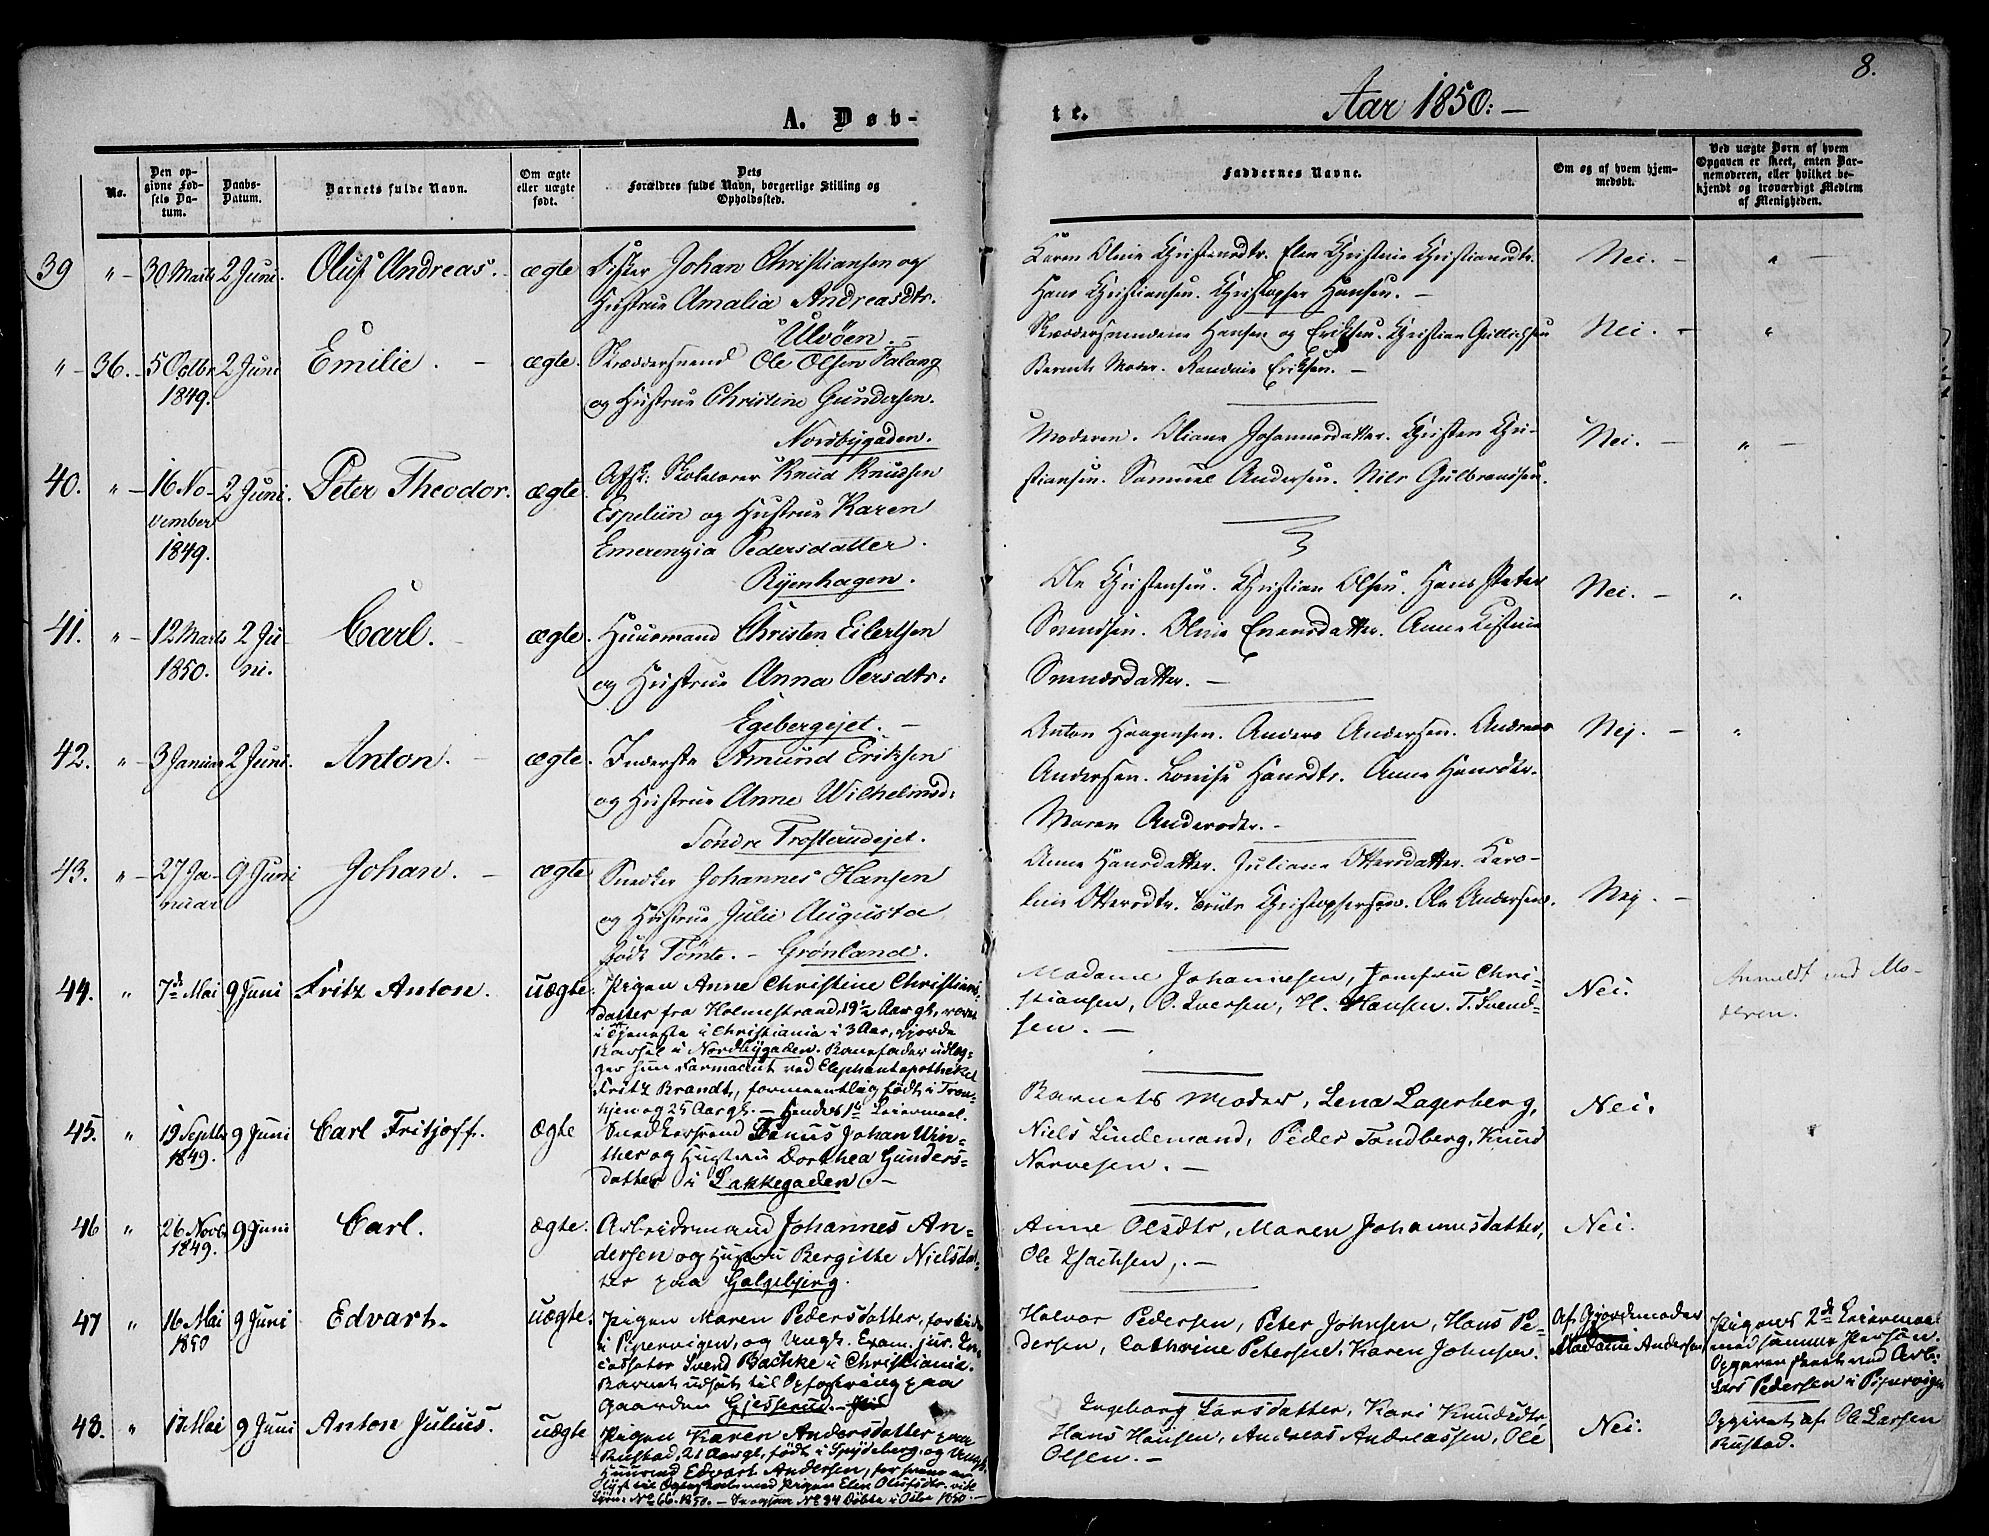 8.
A. Døb-
te.
Aar 1850:-
No.
Den op-
givne Fød-
sels Da-
tum.
Daabs-
Datum.
Barnets fulde Navn.
Om ægte
eller uægte
født.
Dets
Forældres fulde Navn, borgerlige Stilling og
Opholdssted.
Faddernes Navne.
Om og af hvem hjem-
medøbt.
Ved uægte Børn af hvem
Opgaven er skeet, enten Bar-
nemoderen, eller hvilket be-
kjendt og troværdigt Medlem
af Menigheden.
39 " 30 Marts 2 Juni. Oluf Andreas. ægte
Fisker Johan Christiansen og
Hustrue Amalia Andreasdtr.
Ulvøen.
Karen Oline Christensdtr. Elen Christine Christiansdtr.
Hans Christiansen. Christopher Hansen. -
Nei. - "
" 36. 5 Octbr 1849. 2 Juni Emilie. ægte.
Skræddersvend Ole Olsen Falang
og Hustrue Christine Gundersen.
Nordbygaden.
Skræddersvendene Hansen og Eriksen. Christian Gullichsen
Barnets Moder. Randine Eriksen. -
Nei. - "
40. " 16 No-
vember
1849. 2 Juni. Peter Theodor. ægte.
Afsk: Skolelærer Knud Knudsen
Espeliin og Hustrue Karen
Emerenzia Pedersdatter.
Ryenhagen.
Moderen. Oliane Johannesdatter. Christen Chri-
stiansen. Samuel Andersen. Nils Gulbrandsen.
Nei. - "
41. " 12 Marts
1850. 2 Ju-
ni. Carl. ægte.
Huusmand Christen Eilertsen
og Hustrue Anna Persdtr:
Egebergejet. -
Ole Christensen. Christian Olsen. Hans Peter
Svendsen. Oline Evensdatter. Anne Kistine
Svendsdatter. -
Nei. - "
42. " 3 Januar 2 Juni. Anton. ægte.
Inderste Amund Eriksen
og Hustrue Anne Wilhelmsd:
Søndre Trosterudejet.
Anton Haagensen. Anders Andersen. Andreas
Andersen. Lovise Hansdtr. Anne Hansdtr.
Maren Andersdtr. -
Nej. - "
43. " 27 Ja-
nuar 9 Juni Johan. ægte
Snedker Johannes Hansen
og Hustrue Julie Augusta
født Tømte. - Grønland.
Anne Hansdatter. Juliane Ottersdatter. Karo-
line Ottersdtr. Truls Christophersen. Ole Andersen.
Nej. -
44. " 7de Mai 9 Juni Fritz Anton. uægte.
Pigen Anne Christine Christians-
datter fra Holmestrand, 19½ Aar gl, været
i Tjeneste i Christiania i 3 Aar, gjorde
Barsel i Nordbygaden. Barnefader udlæg-
ger hun Farmaceut ved Elephantapotheket
Fritz Brandt, formeentlig født i Tron-
hjem og 25 Aar gl. - Hendes 1ste Leiermaal.
Madame Johannesen, Jomfru Chri-
stiansen, O. Iversen, H. Hansen. T. Svend-
sen. -
Nei.
Anmeldt ved Mo-
deren.
45. " 19 Septbr
1849. 9 Juni Carl Fritjoff. ægte
Snedkersvend Linus Johan Win-
ther og Hustru Dorthea Gunders-
datter i Lakkegaden -
Barnets Moder, Lena Lagerberg,
Niels Lindemand, Peder Tandberg, Knud
Narvesen. -
Nei.
46 " 26 Novbr
1849. 9 Juni Carl. ægte.
Arbeidsmand Johannes An-
dersen og Hustru Bergitte Nielsdat-
ter paa Galgebjerg.
Anne Olsdtr, Maren Johannesdatter,
Ole Isachsen, -
Nei.
47 " 16 Mai
1850 9 Juni Edvart. uægte.
Pigen Maren Pedersdatter,
i Pipervigen, og Ungk. Exam: jur. In-
cassator Svend Bachke i Christiania.
Barnet udsat til Opfostring paa
Gaarden Gjesserud.
Halvor Pedersen, Peter Johnsen, Hans Pe-
dersen, Cathrine Petersen, Karen Johnsen.
Af Gjordemoder
Madame Andersen
Pigens 2det Leiermaal
med samme Person.
Opgaven skeet ved Arb:
Lars Pedersen i Pipervigen
48. " 17 Mai 9 Juni Anton Julius. uægte
Pigen Karen Andersdatter paa
Rustad, 21 Aar gl, født i Spydeberg, og Ungk.
Huusmd Edvart Andersen,
lyst til Ægteskab med Pigen Elen Olufsdtr. vide
No 66. 1850. - No 94 Døbte i Oslo 1850. -
Ingeborg Larsdatter, Kari Knudsdtr
Hans Hansen, Andreas Andreassen, Ole
Olsen. -
Nei.
Opgivet af Ole Larsen
Rustad.